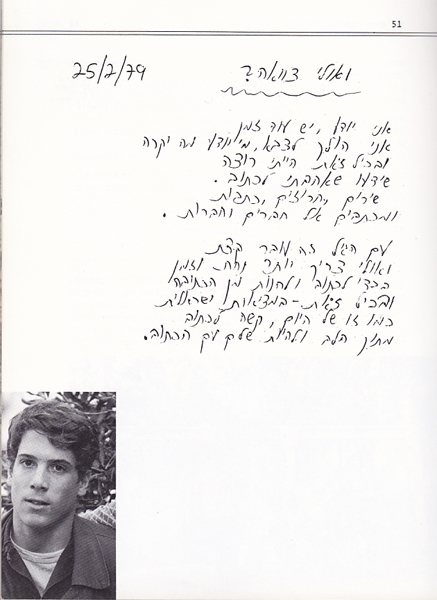 51
25/2/79
ואולי צוואה?
אני יודע, יש עוד זמן
אני הולך לצבא, מי יודע מה יקרה
ובכל זאת הייתי רוצה
שידעו שאהבתי לכתוב.
שירים, חרוזים, כתבות
ומכתבים אל חברים וחברות.
עם הגיל זה עובר קצת
ואולי צריך יותר נחת וזמן
בכדי לכתוב ולהנות מן הכתיבה
ובכל זאת - במציאות ישראלית
כמו זו של היום, קשה לכתוב
מתוך הלב ולהיות שלם עם הכתוב.